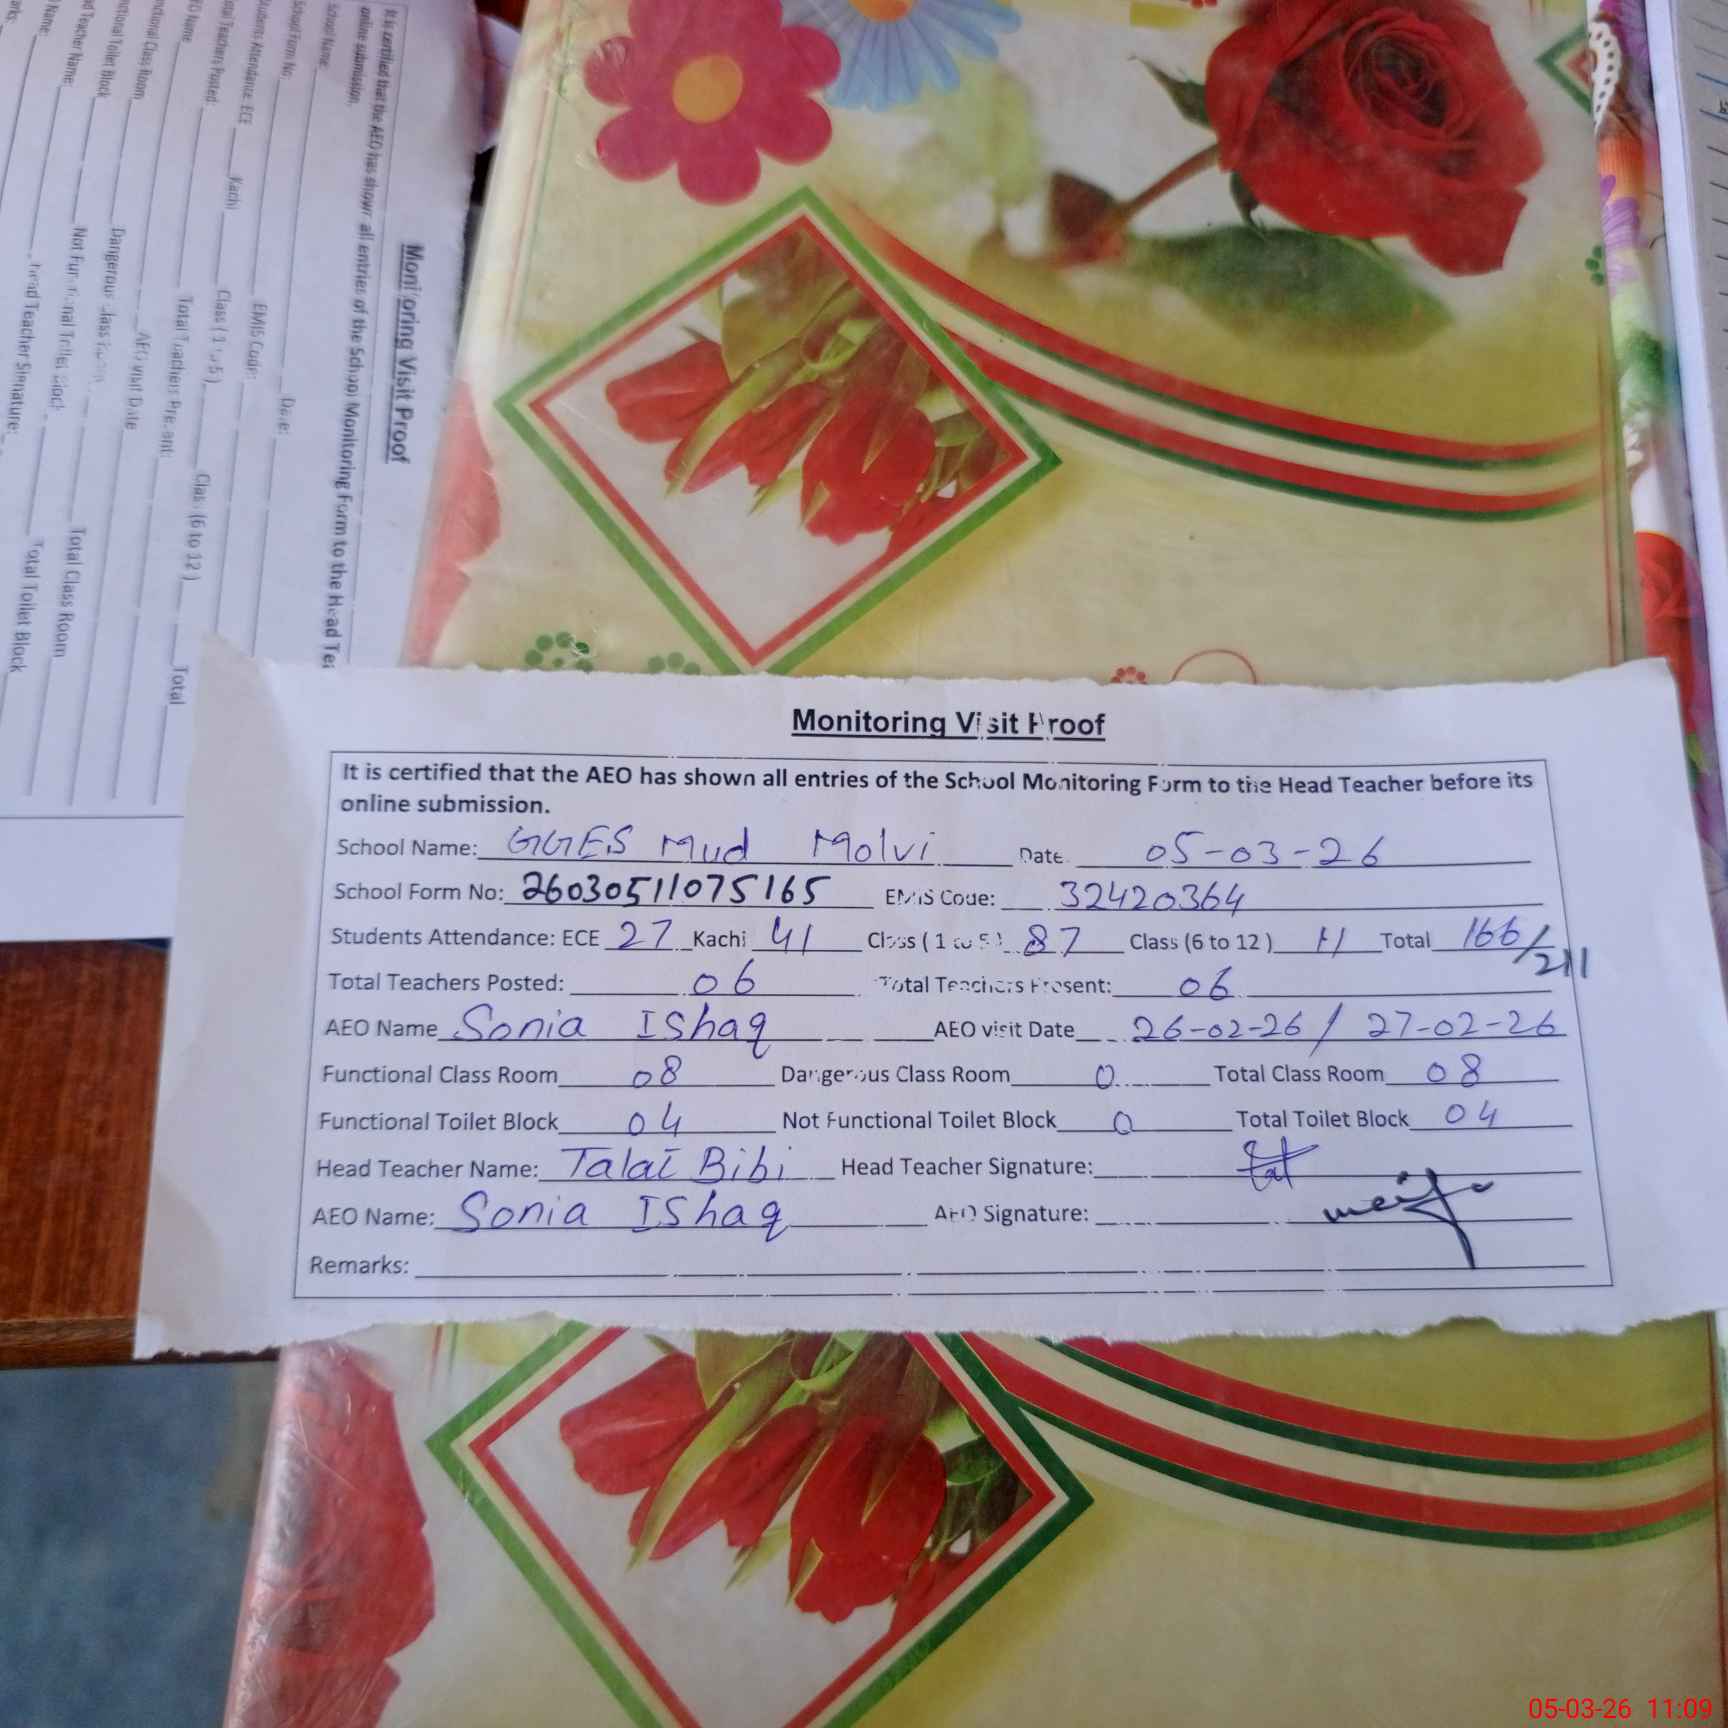 Monitoring Visit Proof
It is certified that the AEO has shown all entries of the School Monitoring Form to the Head Tea
online submission.
School Name:
School Form No: Date:
Students Attendance: ECE Kachi EMIS Code:
Total Teachers Posted: Class (1 to 5) Class (6 to 12) Total
Name Total Teachers Present:
Class Room AEO visit Date
Toilet Block Dangerous Class Room
Teacher Name: Not Functional Toilet Block Total Class Room
Name: Head Teacher Signature: Total Toilet Block
Monitoring Visit Proof
It is certified that the AEO has shown all entries of the School Monitoring Form to the Head Teacher before its
online submission.
School Name: GGES Mud Molvi Date 05-03-26
School Form No: 26030511075165 EMIS Code: 32420364
Students Attendance: ECE 27 Kachi 41 Class ( 1 to 5 ) 87 Class (6 to 12 ) 11 Total 166/211
Total Teachers Posted: 06 Total Teachers Present: 06
AEO Name Sonia IShaq AEO visit Date 26-02-26 / 27-02-26
Functional Class Room 08 Dangerous Class Room 0 Total Class Room 08
Functional Toilet Block 04 Not Functional Toilet Block 0 Total Toilet Block 04
Head Teacher Name: Talat Bibi Head Teacher Signature:
AEO Name: Sonia IShaq AEO Signature:
Remarks:
05-03-26 11:09